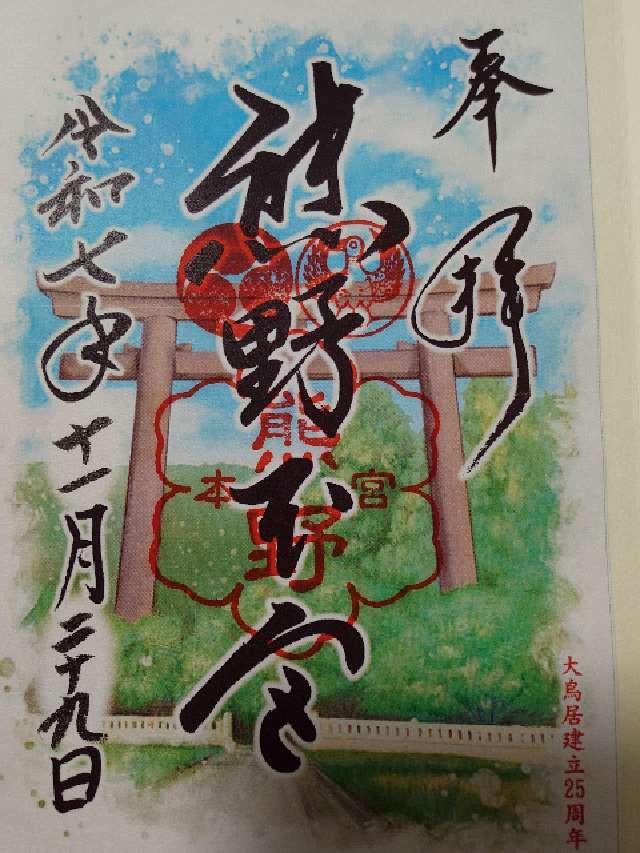 奉拝
熊野本宮
熊野
本宮
令和七年十一月二十九日
大鳥居建立25周年